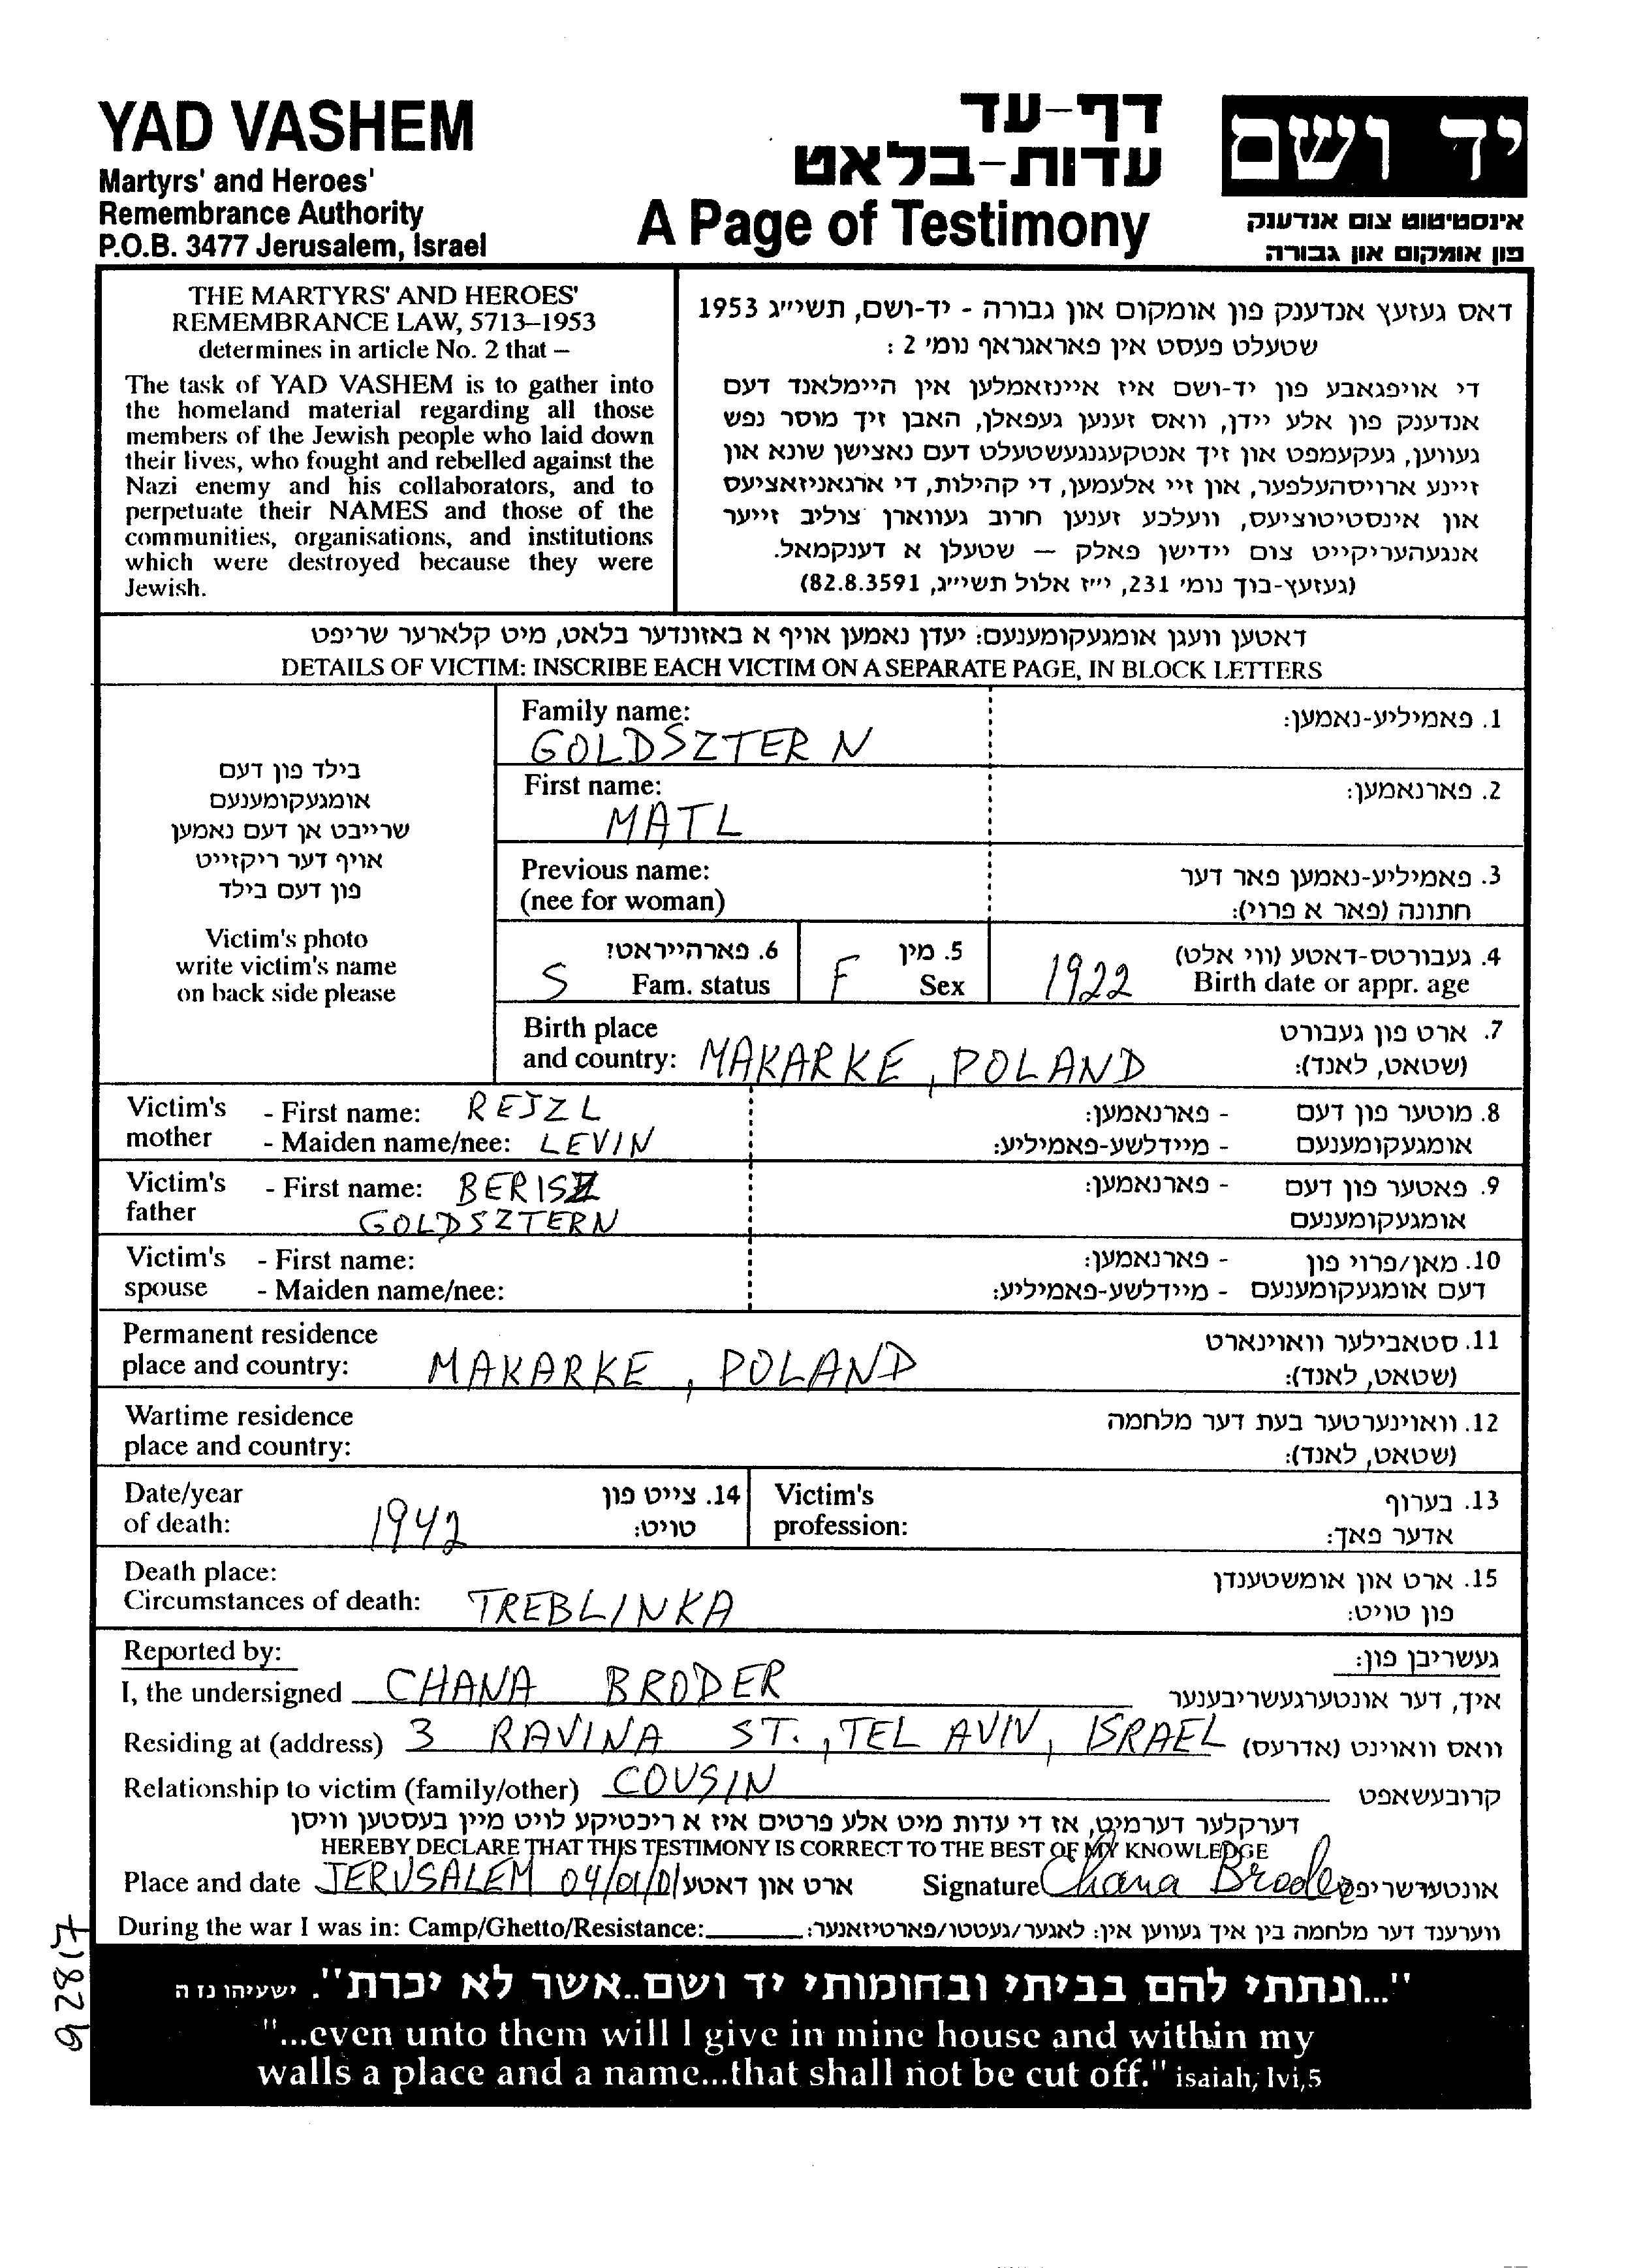 YAD VASHEM
Martyrs' and Heroes'
Remembrance Authority
P.O.B. 3477 Jerusalem, Israel
דף-עד
עדות-בלאט
A Page of Testimony
יד ושם
אינסטיטוט צום אנדענק
פון אומקום און גבורה
THE MARTYRS' AND HEROES'
REMEMBRANCE LAW, 5713–1953
determines in article No. 2 that –
The task of YAD VASHEM is to gather into
the homeland material regarding all those
members of the Jewish people who laid down
their lives, who fought and rebelled against the
Nazi enemy and his collaborators, and to
perpetuate their NAMES and those of the
communities, organisations, and institutions
which were destroyed because they were
Jewish.
דאס געזעץ אנדענק פון אומקום און גבורה - יד-ושם, תשי״ג 1953
שטעלט פעסט אין פאראגראף נומ׳ 2 :
די אויפגאבע פון יד-ושם איז איינזאמלען אין היימלאנד דעם
אנדענק פון אלע יידן, וואס זענען געפאלן, האבן זיך מוסר נפש
געווען, געקעמפט און זיך אנטקעגנגעשטעלט דעם נאצישן שונא און
זיינע ארויסהעלפער, און זיי אלעמען, די קהילות, די ארגאניזאציעס
און אינסטיטוציעס, וועלכע זענען חרוב געווארן צוליב זייער
אנגעהעריקייט צום יידישן פאלק – שטעלן א דענקמאל.
(געזעץ-בוך נומ׳ 231, י״ז אלול תשי״ג, 82.8.3591)
דאטען וועגן אומגעקומענעם: יעדן נאמען אויף א באזונדער בלאט, מיט קלארער שריפט
DETAILS OF VICTIM: INSCRIBE EACH VICTIM ON A SEPARATE PAGE, IN BLOCK LETTERS
בילד פון דעם
אומגעקומענעם
שרייבט אן דעם נאמען
אויף דער ריקזייט
פון דעם בילד
Victim's photo
write victim's name
on back side please
Family name: 1. פאמיליע-נאמען:
GOLDSZTERN
First name: 2. פארנאמען:
MATL
Previous name: 3. פאמיליע-נאמען פאר דער
(nee for woman) חתונה (פאר א פרוי):
6. פארהייראטט? 5. מין 4. געבורטס-דאטע (ווי אלט)
S Fam. status F Sex 1922 Birth date or appr. age
Birth place 7. ארט פון געבורט
and country: MAKARKE, POLAND (שטאט, לאנד):
Victim's - First name: REJZL 8. מוטער פון דעם - פארנאמען:
mother - Maiden name/nee: LEVIN אומגעקומענעם - מיידלשע-פאמיליע:
Victim's - First name: BERISZ 9. פאטער פון דעם - פארנאמען:
father GOLDSZTERN אומגעקומענעם
Victim's - First name: 10. מאן/פרוי פון - פארנאמען:
spouse - Maiden name/nee: דעם אומגעקומענעם - מיידלשע-פאמיליע:
Permanent residence 11. סטאבילער וואוינארט
place and country: MAKARKE, POLAND (שטאט, לאנד):
Wartime residence 12. וואוינערטער בעת דער מלחמה
place and country: (שטאט, לאנד):
Date/year 14. צייט פון Victim's 13. בערוף
of death: 1942 טויט: profession: אדער פאך:
Death place: 15. ארט און אומשטענדן
Circumstances of death: TREBLINKA פון טויט:
Reported by: געשריבן פון:
I, the undersigned CHANA BRODER איך, דער אונטערגעשריבענער
Residing at (address) 3 RAVINA ST., TEL AVIV, ISRAEL וואס וואוינט (אדרעס)
Relationship to victim (family/other) COUSIN קרובעשאפט
דערקלער דערמיט, אז די עדות מיט אלע פרטים איז א ריכטיקע לויט מיין בעסטען וויסן
HEREBY DECLARE THAT THIS TESTIMONY IS CORRECT TO THE BEST OF MY KNOWLEDGE
Place and date JERUSALEM 04/01/01 ארט און דאטע Signature Chana Broder אונטערשריפט
During the war I was in: Camp/Ghetto/Resistance: ווערענד דער מלחמה בין איך געווען אין: לאגער/געטטו/פארטיזאנער:
92817
"...ונתתי להם בביתי ובחומותי יד ושם..אשר לא יכרת". ישעיהו נז ה
"...even unto them will I give in mine house and within my
walls a place and a name...that shall not be cut off." isaiah, lvi,5